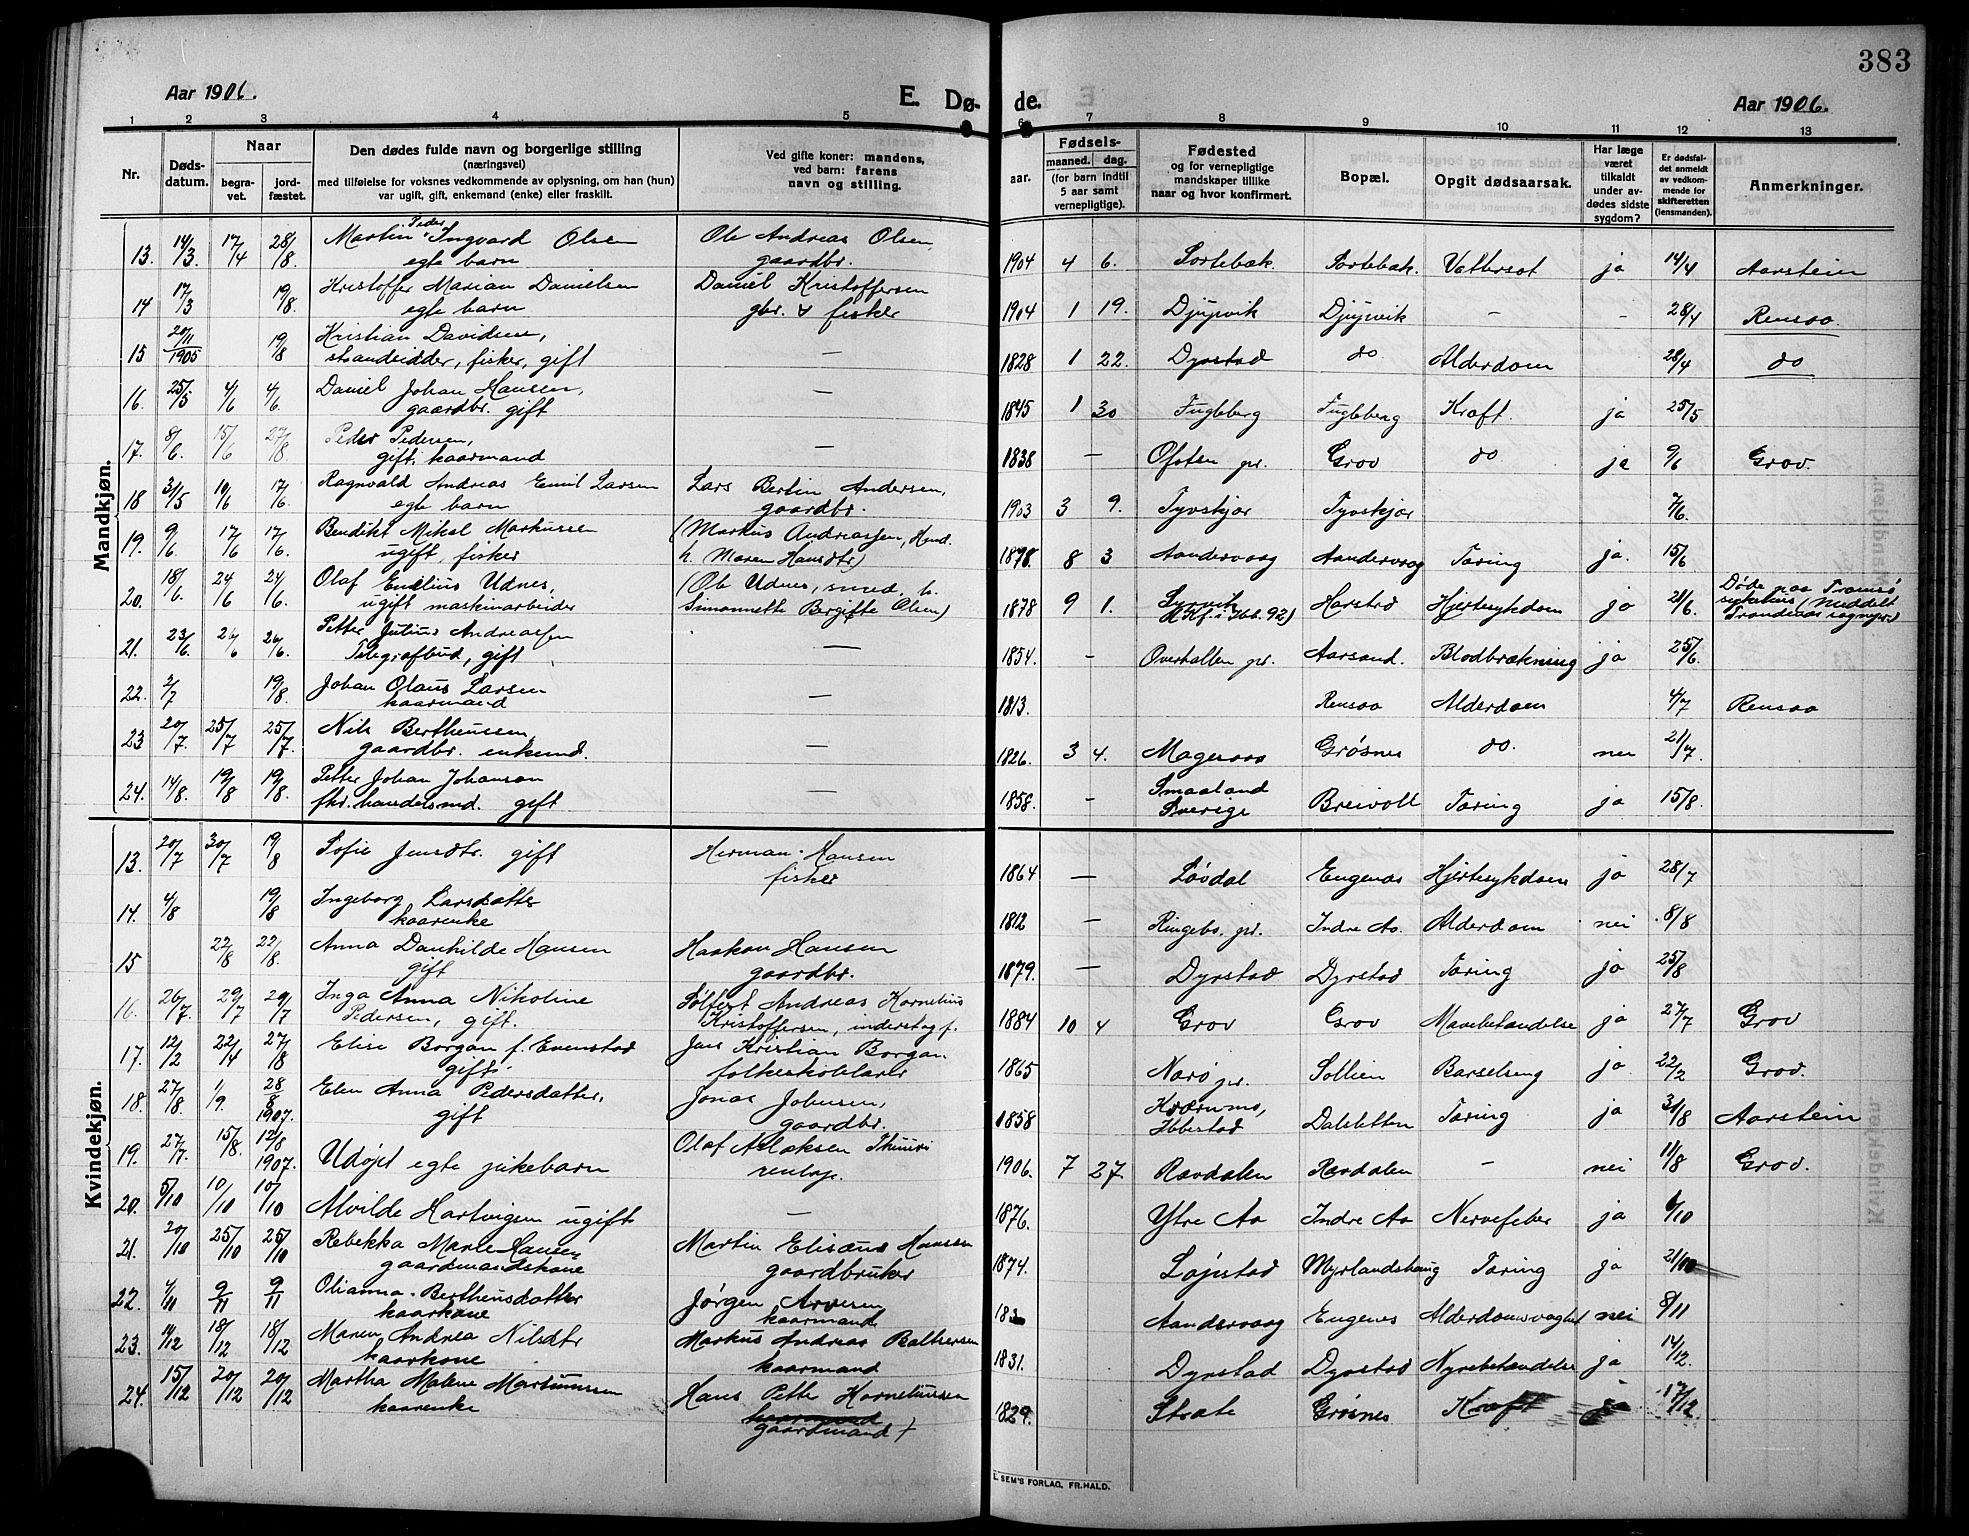 383
Aar 1906.
E. Dø-
de.
Aar 1906.
1 2 3 4 5 6 7 8 9 10 11 12 13
Nr.
Døds-
datum.
Naar
begra-
vet.
jord-
fæstet.
Den dødes fulde navn og borgerlige stilling
(næringsvei)
med tilføielse for voksnes vedkommende av oplysning, om han (hun)
var ugift, gift, enkemand (enke) eller fraskilt.
Ved gifte koner: mandens,
ved barn: farens
navn og stilling.
Fødsels-
aar.
maaned. dag.
(for barn indtil
5 aar samt
vernepligtige).
Fødested
og for vernepligtige
mandskaper tillike
naar og hvor konfirmert.
Bopæl.
Opgit dødsaarsak.
Har læge
været
tilkaldt
under av-
dødes sidste
sygdom?
Er dødsfal-
det anmeldt
av vedkom-
mende for
skifteretten
(lensmanden).
Anmerkninger.
Mandkjøn.
13. 14/3 17/4 28/8 Martin Peder Ingvard Olsen Ole Andreas Olsen 1904 4 6. Sortebæk. Sortebæk. Vattersot ja 14/4 Aarstein
egte barn gaardbr.
14 17/3 19/8 Kristoffer Marian Danielsen Daniel Kristoffersen 1904 1 19. Djupvik Djupvik – – 28/4 Rensaa
egte barn gbr. & fisker
15 20/11 1905 19/8 Kristian Davidsen, – 1828 1 22. Dyrstad do Alderdom 28/4 do
strandsidder, fisker, gift
16. 25/5 4/6 4/6. Daniel Johan Hansen, – 1845 1 30 Fugleberg Fugleberg Kræft. ja 25/5
gaardbr. gift
17. 8/6. 15/6 27/8. Peder Pedersen, – 1838 – Ofoten pr. Grov do ja 9/6 Grov.
gift, kaarmand
18 31/5 10/6 17/6. Ragnvald Andreas Emil Larsen Lars Bertin Andersen, 1903 3 9. Tyvskjær Tyvskjær 7/6.
egte barn gaardbr.
19. 9/6. 17/6 17/6. Bendikt Mikal Markussen (Markus Andreassen, 1878. 8 3 Aandervaag Aandervaag Tæring ja. 15/6
ugift, fisker h. Maren Hansdtr)
20. 18/6. 24/6 24/6. Olaf Emilius Udnes, (Ole Udnes, smed, h. 1878 9 1. Harstad Hjertesykdom ja 21/6.
ugift maskinarbeider Simonnette Bergitte Olsen)
21. 23/6. 26/6 26/6. Petter Julius Andreassen – 1854. – Overhallen pr. Aarsand. Blodbrækning ja 25/6
Telegrafbud, gift
22. 2/7 19/8. Johan Olaus Larsen – 1813. Rensaa Alderdom 4/7 Rensaa
kaarmand
23 20/7. 25/7 25/7. Nils Bertheussen – 1826. 3 4. Grøsnes do. nei 21/7.
gaardbr. enkemd.
24. 14/8. 19/8 19/8. Petter Johan Johanson – 1858. – Smaaland Sverige Breivoll Tæring ja 15/8.
fhv. handelsmd. gift
Kvindekjøn.
13. 20/7 30/7 19/8 Sofie Jensdtr. gift Herman Hansen 1864 – Løvdal Engenes Hjertesykdom ja 28/7
fisker
14. 4/8 19/8 Ingeborg Larsdatter 1812 – Ringebo pr. Indre Aa. Alderdom nei 8/8
kaarenke
15 22/8 22/8. Anna Danhilde Hansen Haakon Hansen 1879. – Dyrstad Dyrstad Tæring ja 25/8
gift gaardbr.
16. 26/7. 29/7 29/7 Inga Anna Nikoline Andreas Kornelius 1884 10 4 Grov Grov Mavebetændelse ja 27/7 Grov
Pedersen, gift. Kristoffersen,
17. 12/2 22/4 27/8 Elise Borgan f. Evenstad Jens Kristian Borgan 1865 Nærø pr. Sollien Barselseng ja 22/2 Grov.
gift. folkeskolelærer
18. 27/8 1/9. 28/8 1907. Elen Anna Pedersdatter, Jonas Johnsen, 1858 Ibbestad Dalsletten Tæring ja 31/8 Aarstein
gift gaardbr.
19. 27/7. 15/8. 12/8 1907. Udøpt egte pikebarn Olaf Aslaksen Thuuri 1906. 7 27 Rævdalen Rævdalen – nei 11/8 Grov.
renlap.
20. 5/10 10/10 10/10 Alvilde Hartvigsen ugift – 1876. Ytre Aa Indre Aa Nervefeber ja 6/10
21. 20/10 25/10 25/10 Rebekka Marle Hansen Martin Elisæus Hansen 1874. Løpstad Myrlandshaug Tæring ja 21/10
gaardmandskone gaardbruker
22. 4/11 9/11 9/11 Olianna Bertheusdatter Jørgen Arvesen Aandervaag Engenes Alderdomssvaghet nei 8/11
kaarkone kaarmand
23. 11/12 18/12 18/12 Maren Andrea Nilsdtr Markus Andreas Baltsersen 1831. Dyrstad Dyrstad Nyrebetændelse ja 14/12.
kaarkone kaarmand
24. 15/12 20/12 20/12 Martha Malene Hans Petter Korneliussen 1829. Strate Grøsnes Kræft ja 17/12
kaarenke gaardmand +
L. SEM'S FORLAG, FR.HALD.